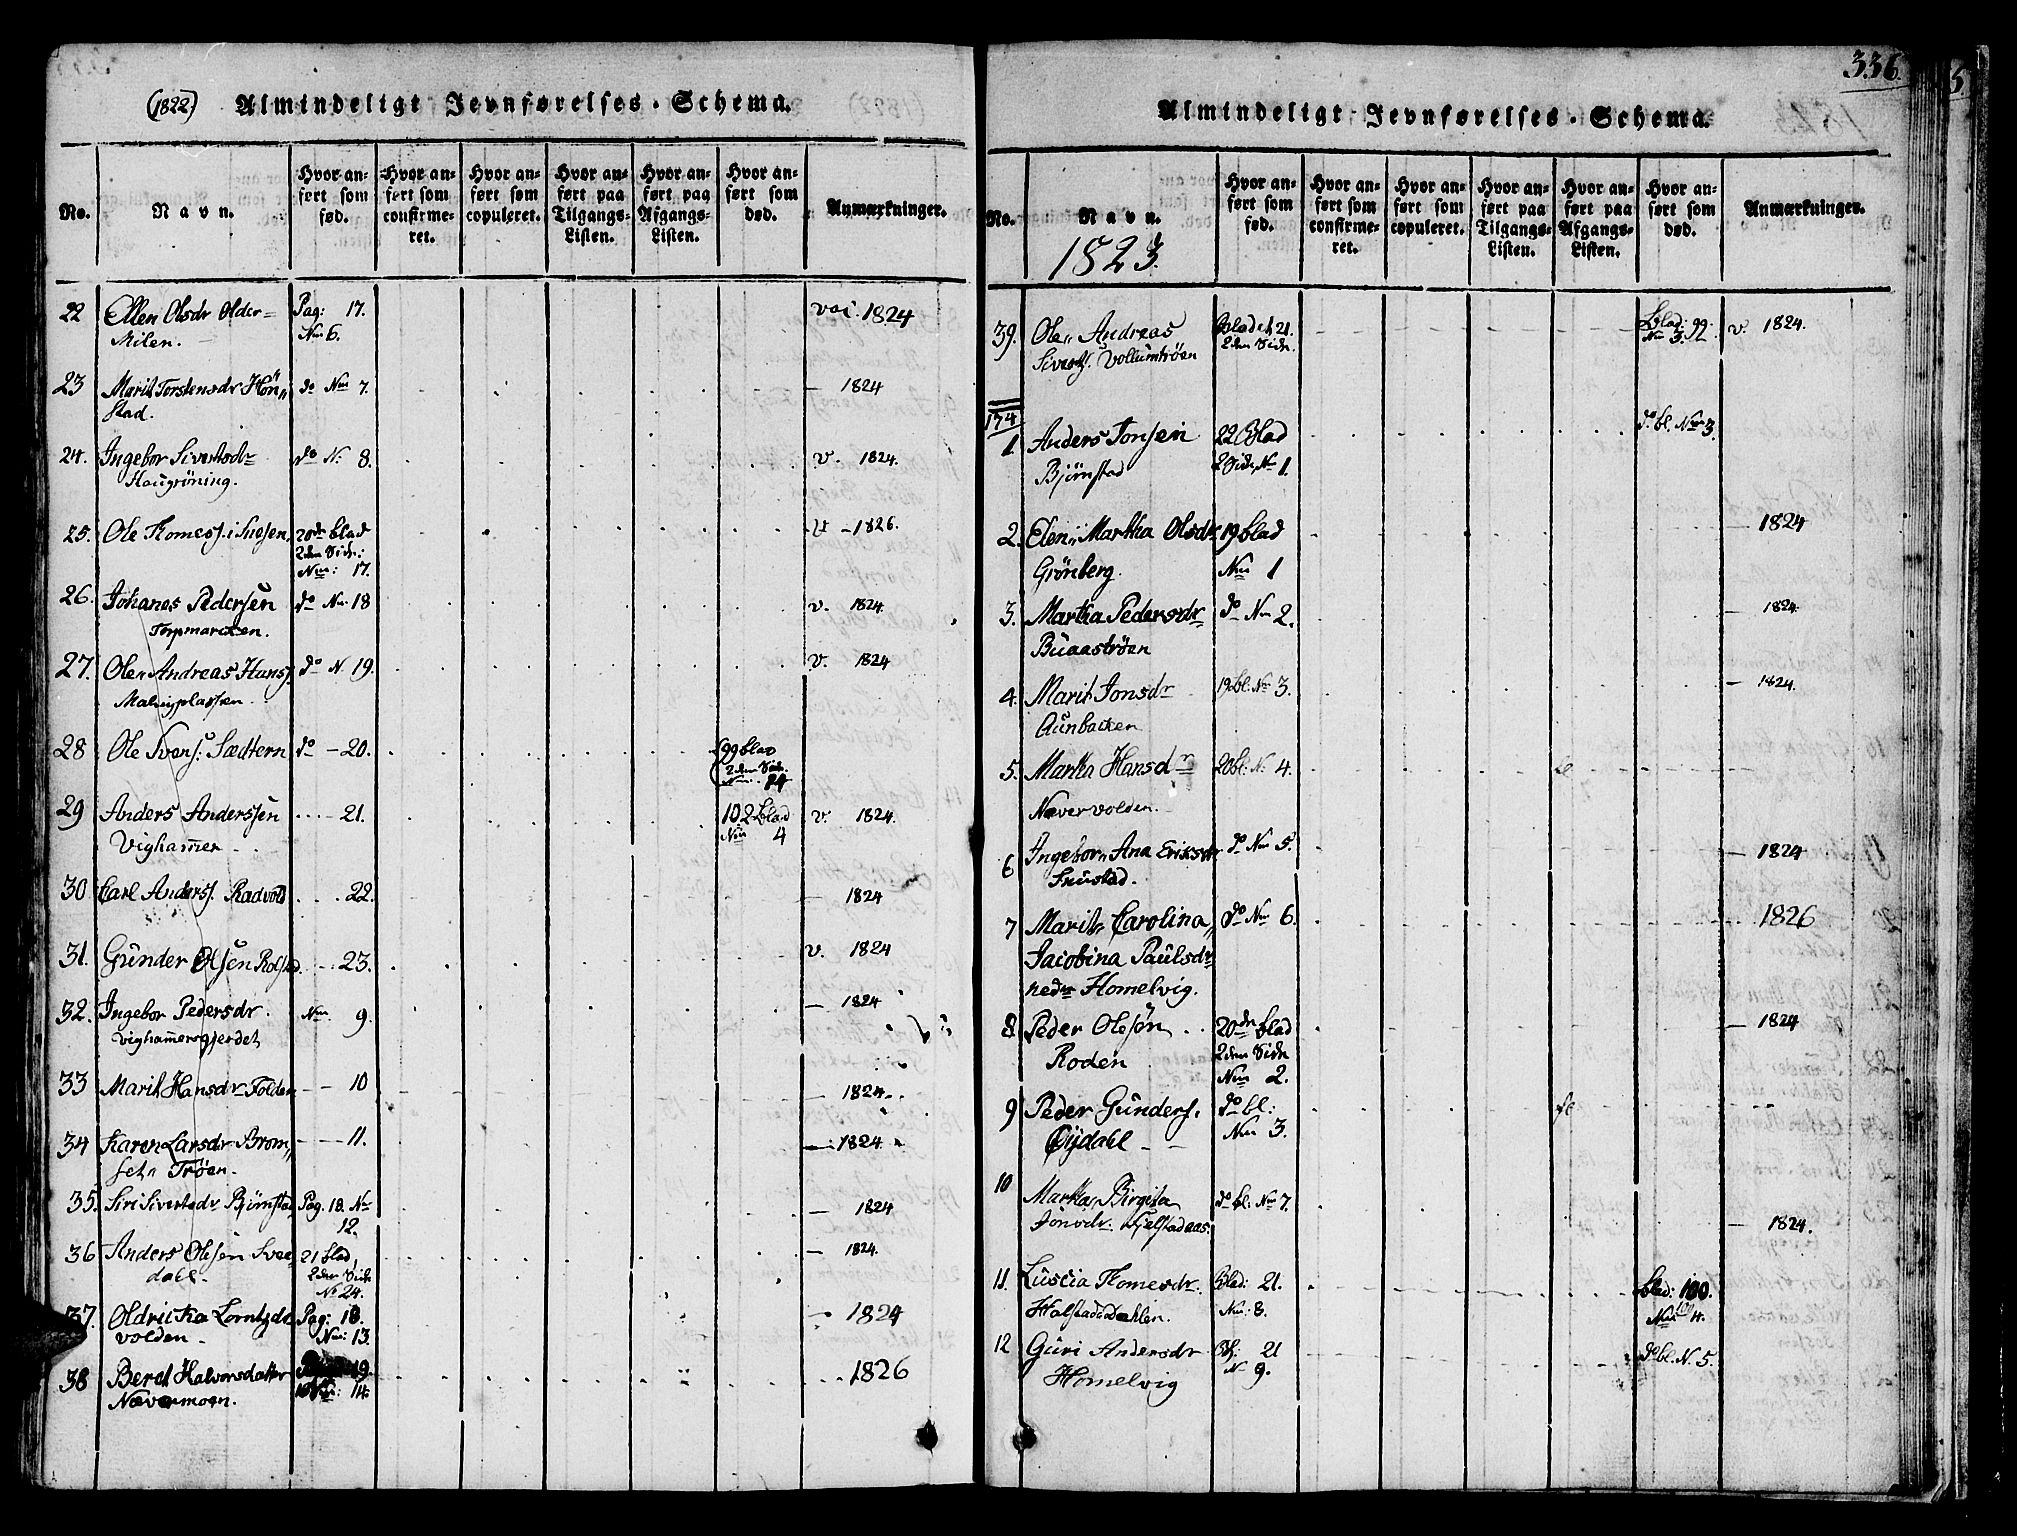 (1822) Almindeligt Jevnførelses-Schema.
No.
Navn.
Hvor anført som fød.
Hvor anført som confirmeret.
Hvor anført som copuleret.
Hvor anført paa Tilgangs-Listen.
Hvor anført paa Afgangs-Listen.
Hvor anført som død.
Anmærkninger.
22 Ellen Olsdr Older= Pag: 17. 1824
Milen. Nm 6.
23 Marit Torstensdr Hön„ do Nm 7. — 1824
stad.
24. Ingebor Sivertsdr do N. 8. v. 1824.
Haugröning.
25. Ole Tomess. i 20de blad v - 1826.
2den Side:
Nm: 17.
26. Johanes Pedersen do Nm 18 v. 1824
27. Ole„ Andreas Hans. do N. 19. v. 1824
Malvigplassen.
28 Ole Svens: Sædtern do - 20. 99 blad
2den Side.
29 Anders Anderssen - 21. 102 blad v. 1824.
Vighammer Nm 4
30 Carl Anders. Radvold 22. — 1824
31. Gunder Olsen Rolstad 23. v. 1824
32. Ingebor Pedersdr. Nm. 9. — 1824
Vighammersgjerdet
33 Marit Hansdr Folden — 10 — 1824
34 Karen Larsdr Brom„ — 11. — 1824
set„ Tröen.
35. Siri Sivertsdr Björnstad Pag. 18. Nm — 1824
12.
36 Anders Olesen Svee 21 blad — 1824.
dahl. 2den Side
No 24.
37. Oldricka Lorntzdr Pag: 18. — 1824
volden Nm: 13.
38 Bered Halvorsdatter 19. 1826
Nævermoen. Nm: 14.
336.
Almindeligt Jevnførelses-Schema.
No.
Navn.
1823.
Hvor anført som fød.
Hvor anført som confirmeret.
Hvor anført som copuleret.
Hvor anført paa Tilgangs-Listen.
Hvor anført paa Afgangs-Listen.
Hvor anført som død.
Anmærkninger.
39. Ole„ Andreas Bladet 21. blad: 99. v. 1824.
Siverts. Vollumtröen 2den Side.
174
1 Anders Jonsen 22 Blad do bl. Nm 3.
Björnstad 2 Side, Nm 1.
2. Elen„ Martha Olsdr. 19 blad — 1824
Grönberg. Nm 1
3. Martha Pedersdr do Nm 2. — 1824
Buaaströen
4. Marit Jonsdr 19 bl: Nm 3. — 1824.
Aunbacken
5. Martha Hansdr 20 bl: N. 4.
Nævervolden.
6 Ingebor„ Ana Eriksdr do Nm 5. — 1824
7 Marit„ Carolina„ do Nm 6. — 1826
Jacobina Paulsdr
nedr Homelvig.
8 Peder Olesön 20de blad — 1824
Roden 2den Side
Nm 2.
9 Peder Gunders. do bl:
Nm 3.
10 Martha„ Birgita do bl: Nm 7.
Jonsdr. Fjelstadaas. — 1824.
11. Luscia Tomesdr. Blad: 21. blad: 100.
Halstaddahlen. Nm: 8. Nm 4.
12 Guri Andersdr 21 do bl. N. 5.
Homelvig N 9.